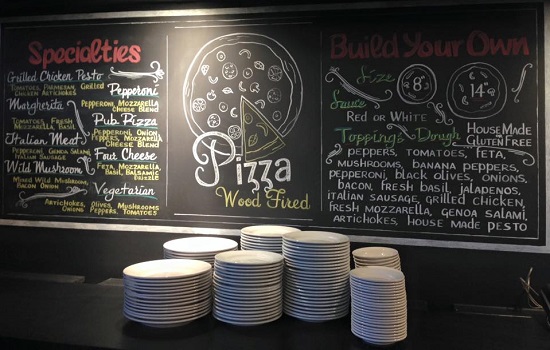 Specialties
Grilled Chicken Pesto
Tomatoes, Parmesan, Grilled
Chicken Artichokes
Margherita
Tomatoes, Fresh
Mozzarella, Basil
Italian Meat
Pepperoni, Genoa Salami
Italian Sausage
Wild Mushroom
Mixed Wild Mushrooms
Bacon Onion
Artichokes,
Onions
Pepperoni
Pepperoni, Mozzarella
Cheese Blend
Pub Pizza
Pepperoni, Onion
Peppers, Mozzarella
Cheese Blend
Four Cheese
Feta, Mozzarella
Basil, Balsamic
Drizzle
Vegetarian
Olives, Mushrooms
Peppers, Tomatoes
Pizza
Wood Fired
Build Your Own
Size
8"
14"
Sauce
Red or White
Toppings
Dough
House Made
Gluten Free
Peppers, Tomatoes, Feta,
Mushrooms, Banana Peppers,
Pepperoni, Black Olives, Onions,
Bacon, Fresh Basil, Jalapenos,
Italian Sausage, Grilled Chicken,
Fresh Mozzarella, Genoa Salami,
Artichokes, House Made Pesto